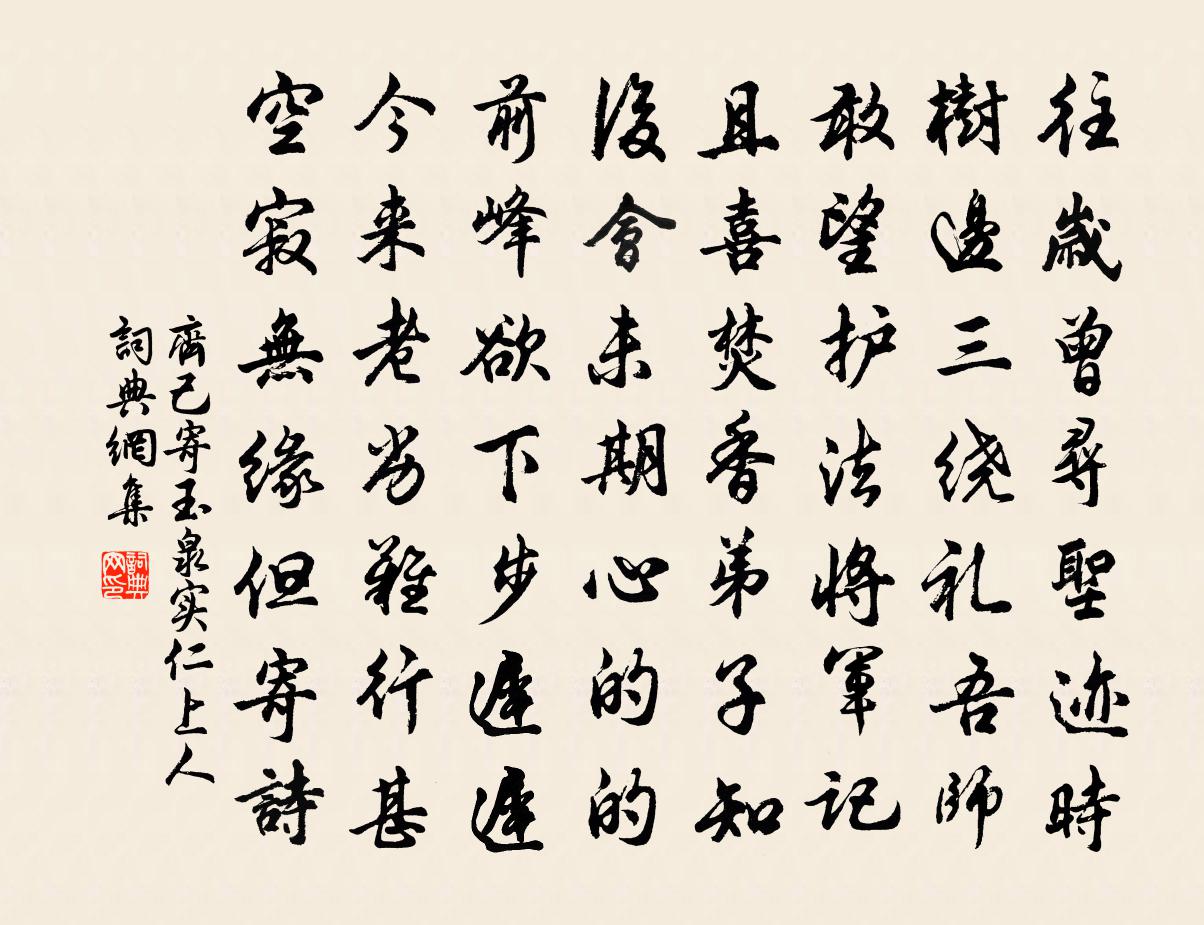 往歲曾尋聖迹時
樹邊三绕礼吾師
敢望护法將軍記
且喜焚香弟子知
後會未期心的的
前峰欲下步遲遲
今来老劣難行甚
空寂無緣但寄詩
齊己寄玉泉实仁上人
詞典網集
詞典网印